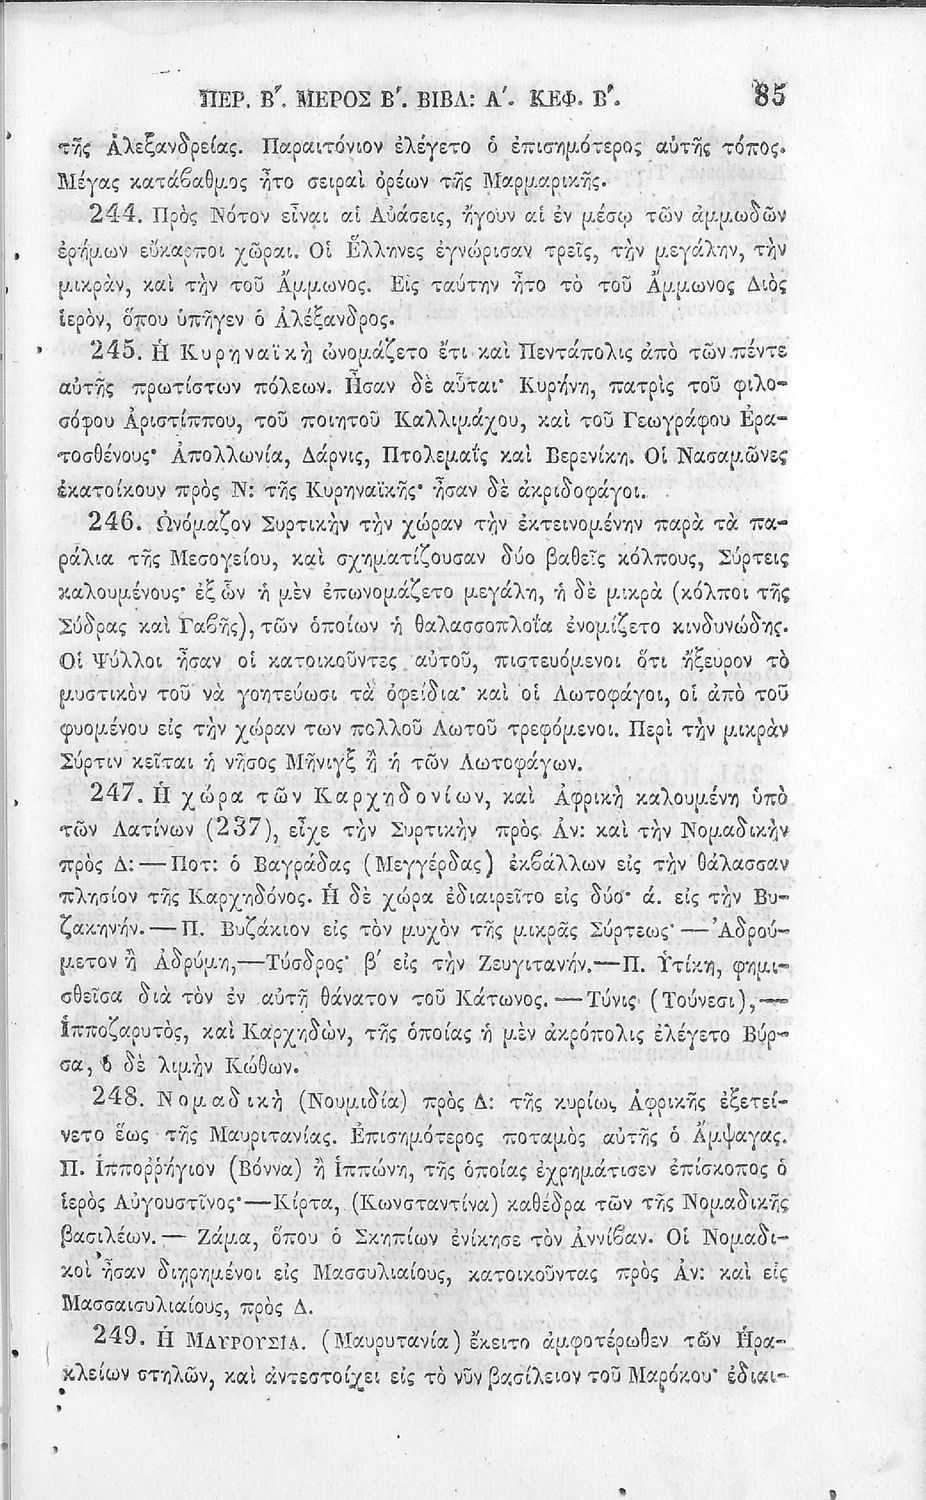 ΠΕΡ. Β΄. ΜΕΡΟΣ Β΄. ΒΙΒΛ: Α΄. ΚΕΦ. Β΄. 85
τῆς Ἀλεξανδρείας. Παραιτόνιον ἐλέγετο ὁ ἐπισημότερος αὐτῆς τόπος.
Μέγας κατάβαθμος ἦτο σειραὶ ὀρέων τῆς Μαρμαρικῆς.
244. Πρὸς Νότον εἶναι αἱ Αὐάσεις, ἤγουν αἱ ἐν μέσῳ τῶν ἀμμωδῶν
ἐρήμων εὔκαρποι χῶραι. Οἱ Ἕλληνες ἐγνώρισαν τρεῖς, τὴν μεγάλην, τὴν
μικρὰν, καὶ τὴν τοῦ Ἄμμωνος. Εἰς ταύτην ἦτο τὸ τοῦ Ἄμμωνος Διὸς
ἱερὸν, ὅπου ὑπῆγεν ὁ Ἀλέξανδρος.
245. Ἡ Κυρηναϊκὴ ὠνομάζετο ἔτι καὶ Πεντάπολις ἀπὸ τῶν πέντε
αὐτῆς πρωτίστων πόλεων. Ἦσαν δὲ αὗται· Κυρήνη, πατρὶς τοῦ φιλο-
σόφου Ἀριστίππου, τοῦ ποιητοῦ Καλλιμάχου, καὶ τοῦ Γεωγράφου Ἐρα-
τοσθένους· Ἀπολλωνία, Δάρνις, Πτολεμαΐς καὶ Βερενίκη. Οἱ Νασαμῶνες
ἐκατοίκουν πρὸς Ν: τῆς Κυρηναϊκῆς· ἦσαν δὲ ἀκριδοφάγοι.
246. Ὠνόμαζον Συρτικὴν τὴν χώραν τὴν ἐκτεινομένην παρὰ τὰ πα-
ράλια τῆς Μεσογείου, καὶ σχηματίζουσαν δύο βαθεῖς κόλπους, Σύρτεις
καλουμένους· ἐξ ὧν ἡ μὲν ἐπωνομάζετο μεγάλη, ἡ δὲ μικρὰ (κόλποι τῆς
Σύδρας καὶ Γαβῆς), τῶν ὁποίων ἡ θαλασσοπλοΐα ἐνομίζετο κινδυνώδης.
Οἱ Ψύλλοι ἦσαν οἱ κατοικοῦντες αὐτοῦ, πιστευόμενοι ὅτι ἤξευρον τὸ
μυστικὸν τοῦ νὰ γοητεύωσι τὰ ὀφείδια· καὶ οἱ Λωτοφάγοι, οἱ ἀπὸ τοῦ
φυομένου εἰς τὴν χώραν των πολλοῦ Λωτοῦ τρεφόμενοι. Περὶ τὴν μικρὰν
Σύρτιν κεῖται ἡ νῆσος Μῆνιγξ ἢ ἡ τῶν Λωτοφάγων.
247. Ἡ χώρα τῶν Καρχηδονίων, καὶ Ἀφρικὴ καλουμένη ὑπὸ
τῶν Λατίνων (237), εἶχε τὴν Συρτικὴν πρὸς Ἀν: καὶ τὴν Νομαδικὴν
πρὸς Δ: — Ποτ: ὁ Βαγράδας (Μεγγέρδας) ἐκβάλλων εἰς τὴν θάλασσαν
πλησίον τῆς Καρχηδόνος. Ἡ δὲ χώρα ἐδιαιρεῖτο εἰς δύο· ά. εἰς τὴν Βυ-
ζακηνήν. — Π. Βυζάκιον εἰς τὸν μυχὸν τῆς μικρᾶς Σύρτεως· — Ἀδρού-
μετον ἢ Ἀδρύμη,—Τύσδρος· β΄ εἰς τὴν Ζευγιτανήν.—Π. Ὑτίκη, φημι-
σθεῖσα διὰ τὸν ἐν αὐτῇ θάνατον τοῦ Κάτωνος. — Τύνις (Τούνεσι),—
Ἱπποζαρυτὸς, καὶ Καρχηδὼν, τῆς ὁποίας ἡ μὲν ἀκρόπολις ἐλέγετο Βύρ-
σα, ὁ δὲ λιμὴν Κώθων.
248. Νομαδικὴ (Νουμιδία) πρὸς Δ: τῆς κυρίως Ἀφρικῆς ἐξετεί-
νετο ἕως τῆς Μαυριτανίας. Ἐπισημότερος ποταμὸς αὐτῆς ὁ Ἄμψαγας.
Π. Ἱπποῤῥήγιον (Βόννα) ἢ Ἱππώνη, τῆς ὁποίας ἐχρημάτισεν ἐπίσκοπος ὁ
ἱερὸς Αὐγουστῖνος·—Κίρτα, (Κωνσταντίνα) καθέδρα τῶν τῆς Νομαδικῆς
βασιλέων. — Ζάμα, ὅπου ὁ Σκηπίων ἐνίκησε τὸν Ἀννίβαν. Οἱ Νομαδι-
κοὶ ἦσαν διῃρημένοι εἰς Μασσυλιαίους, κατοικοῦντας πρὸς Ἀν: καὶ εἰς
Μασσαισυλιαίους, πρὸς Δ.
249. Ἡ ΜΑΥΡΟΥΣΙΑ. (Μαυρυτανία) ἔκειτο ἀμφοτέρωθεν τῶν Ἡρα-
κλείων στηλῶν, καὶ ἀντεστοίχει εἰς τὸ νῦν βασίλειον τοῦ Μαρόκου· ἐδιαι-